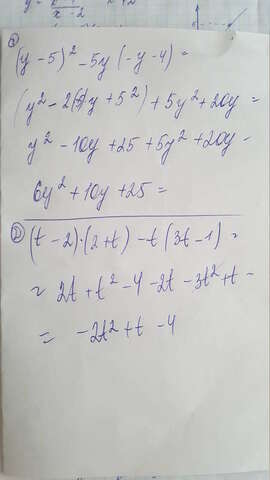 ①
(y - 5)² - 5y (-y - 4) =
y² - 10y + 25 + 5y² + 20y =
6y² + 10y + 25 =
②
(t - 2)·(2 + t) - t (3t - 1) =
= 2t + t² - 4 - 2t - 3t² + t =
= -2t² + t - 4